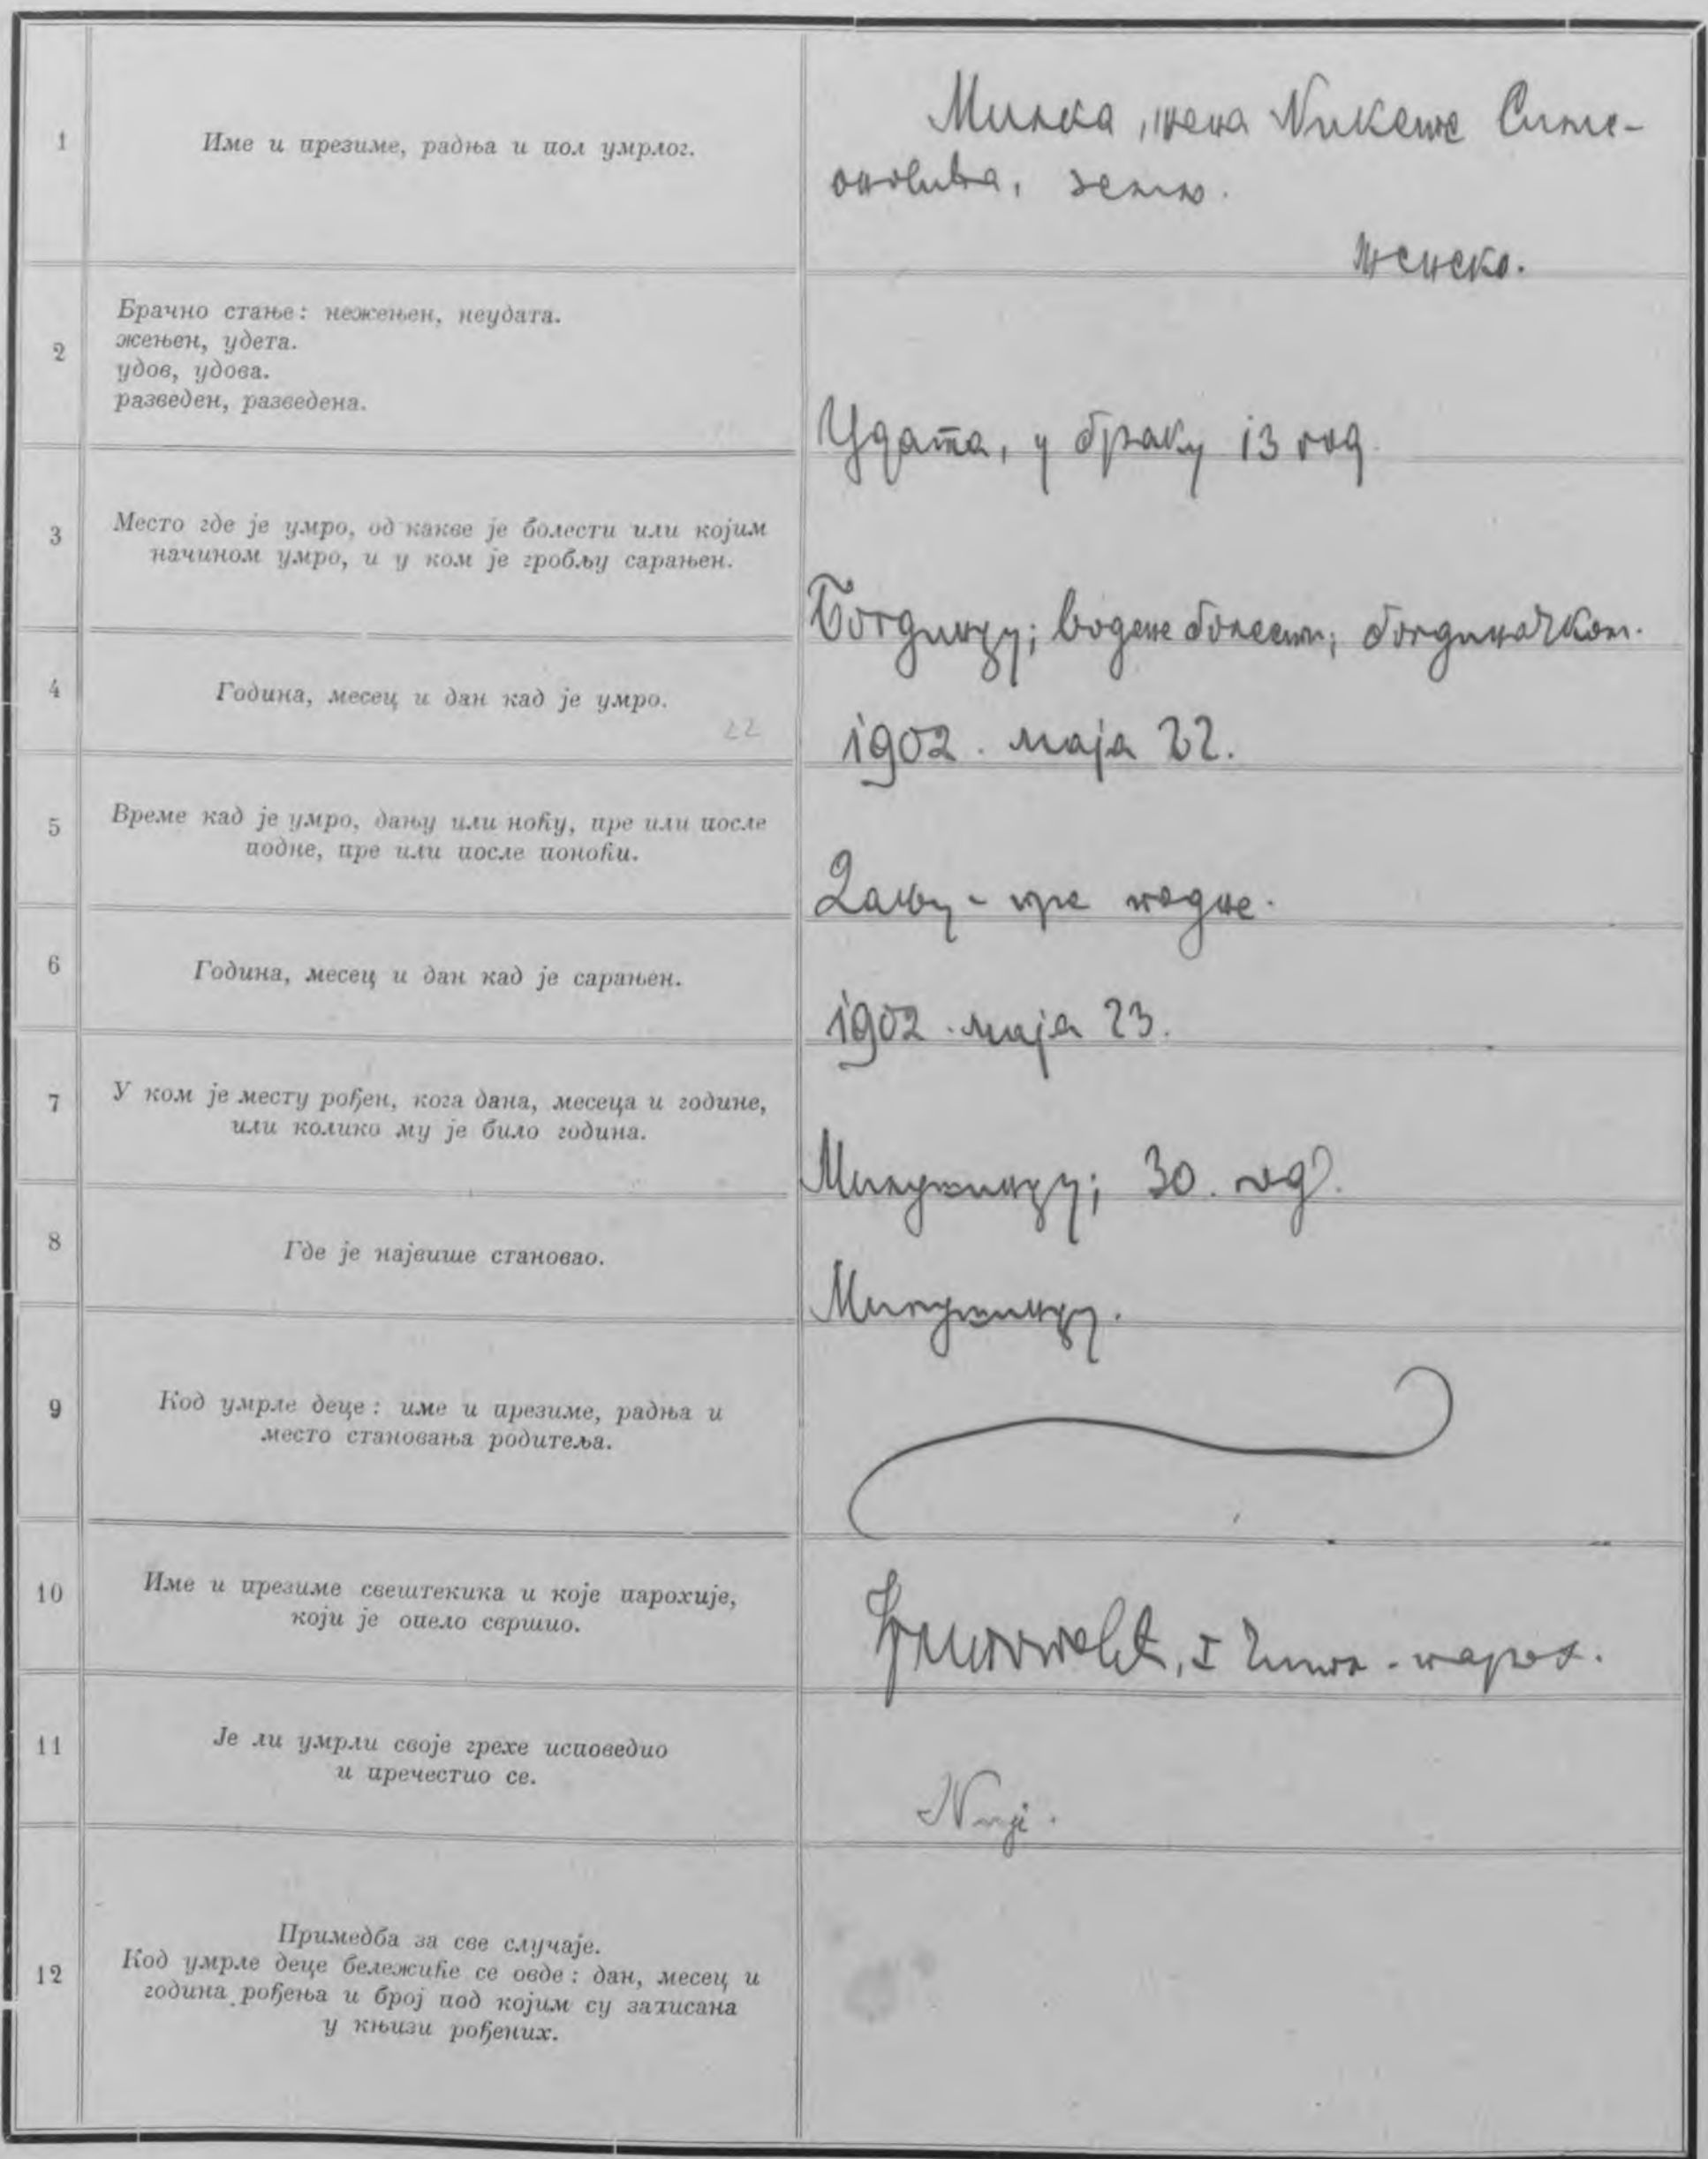 1
Име и презиме, радња и пол умрлог.
Милка, жена Николе Симе-
оновића, земљ.
женско.
2
Брачно стање: нежењен, неудата.
жењен, удета.
удов, удова.
разведен, разведена.
Удата, у браку 13 год.
3
Место где је умро, од какве је болести или којим
начином умро, и у ком је гробљу сарањен.
Богдинцу; водене болести; богдиначком.
4
Година, месец и дан кад је умро.
22
1902. маја 22.
5
Време кад је умро, дању или ноћу, пре или после
подне, пре или после поноћи.
Дању - пре подне.
6
Година, месец и дан кад је сарањен.
1902. маја 23.
7
У ком је месту рођен, кога дана, месеца и године,
или колико му је било година.
Милутинцу; 30. год.
8
Где је највише становао.
Милутинцу.
9
Код умрле деце: име и презиме, радња и
место становања родитеља.
10
Име и презиме свештекика и које парохије,
који је опело свршио.
парох.
11
Је ли умрли своје грехе исповедио
и пречестио се.
Није.
12
Примедба за све случаје.
Код умрле деце бележиће се овде: дан, месец и
година рођења и број под којим су записана
у књизи рођених.